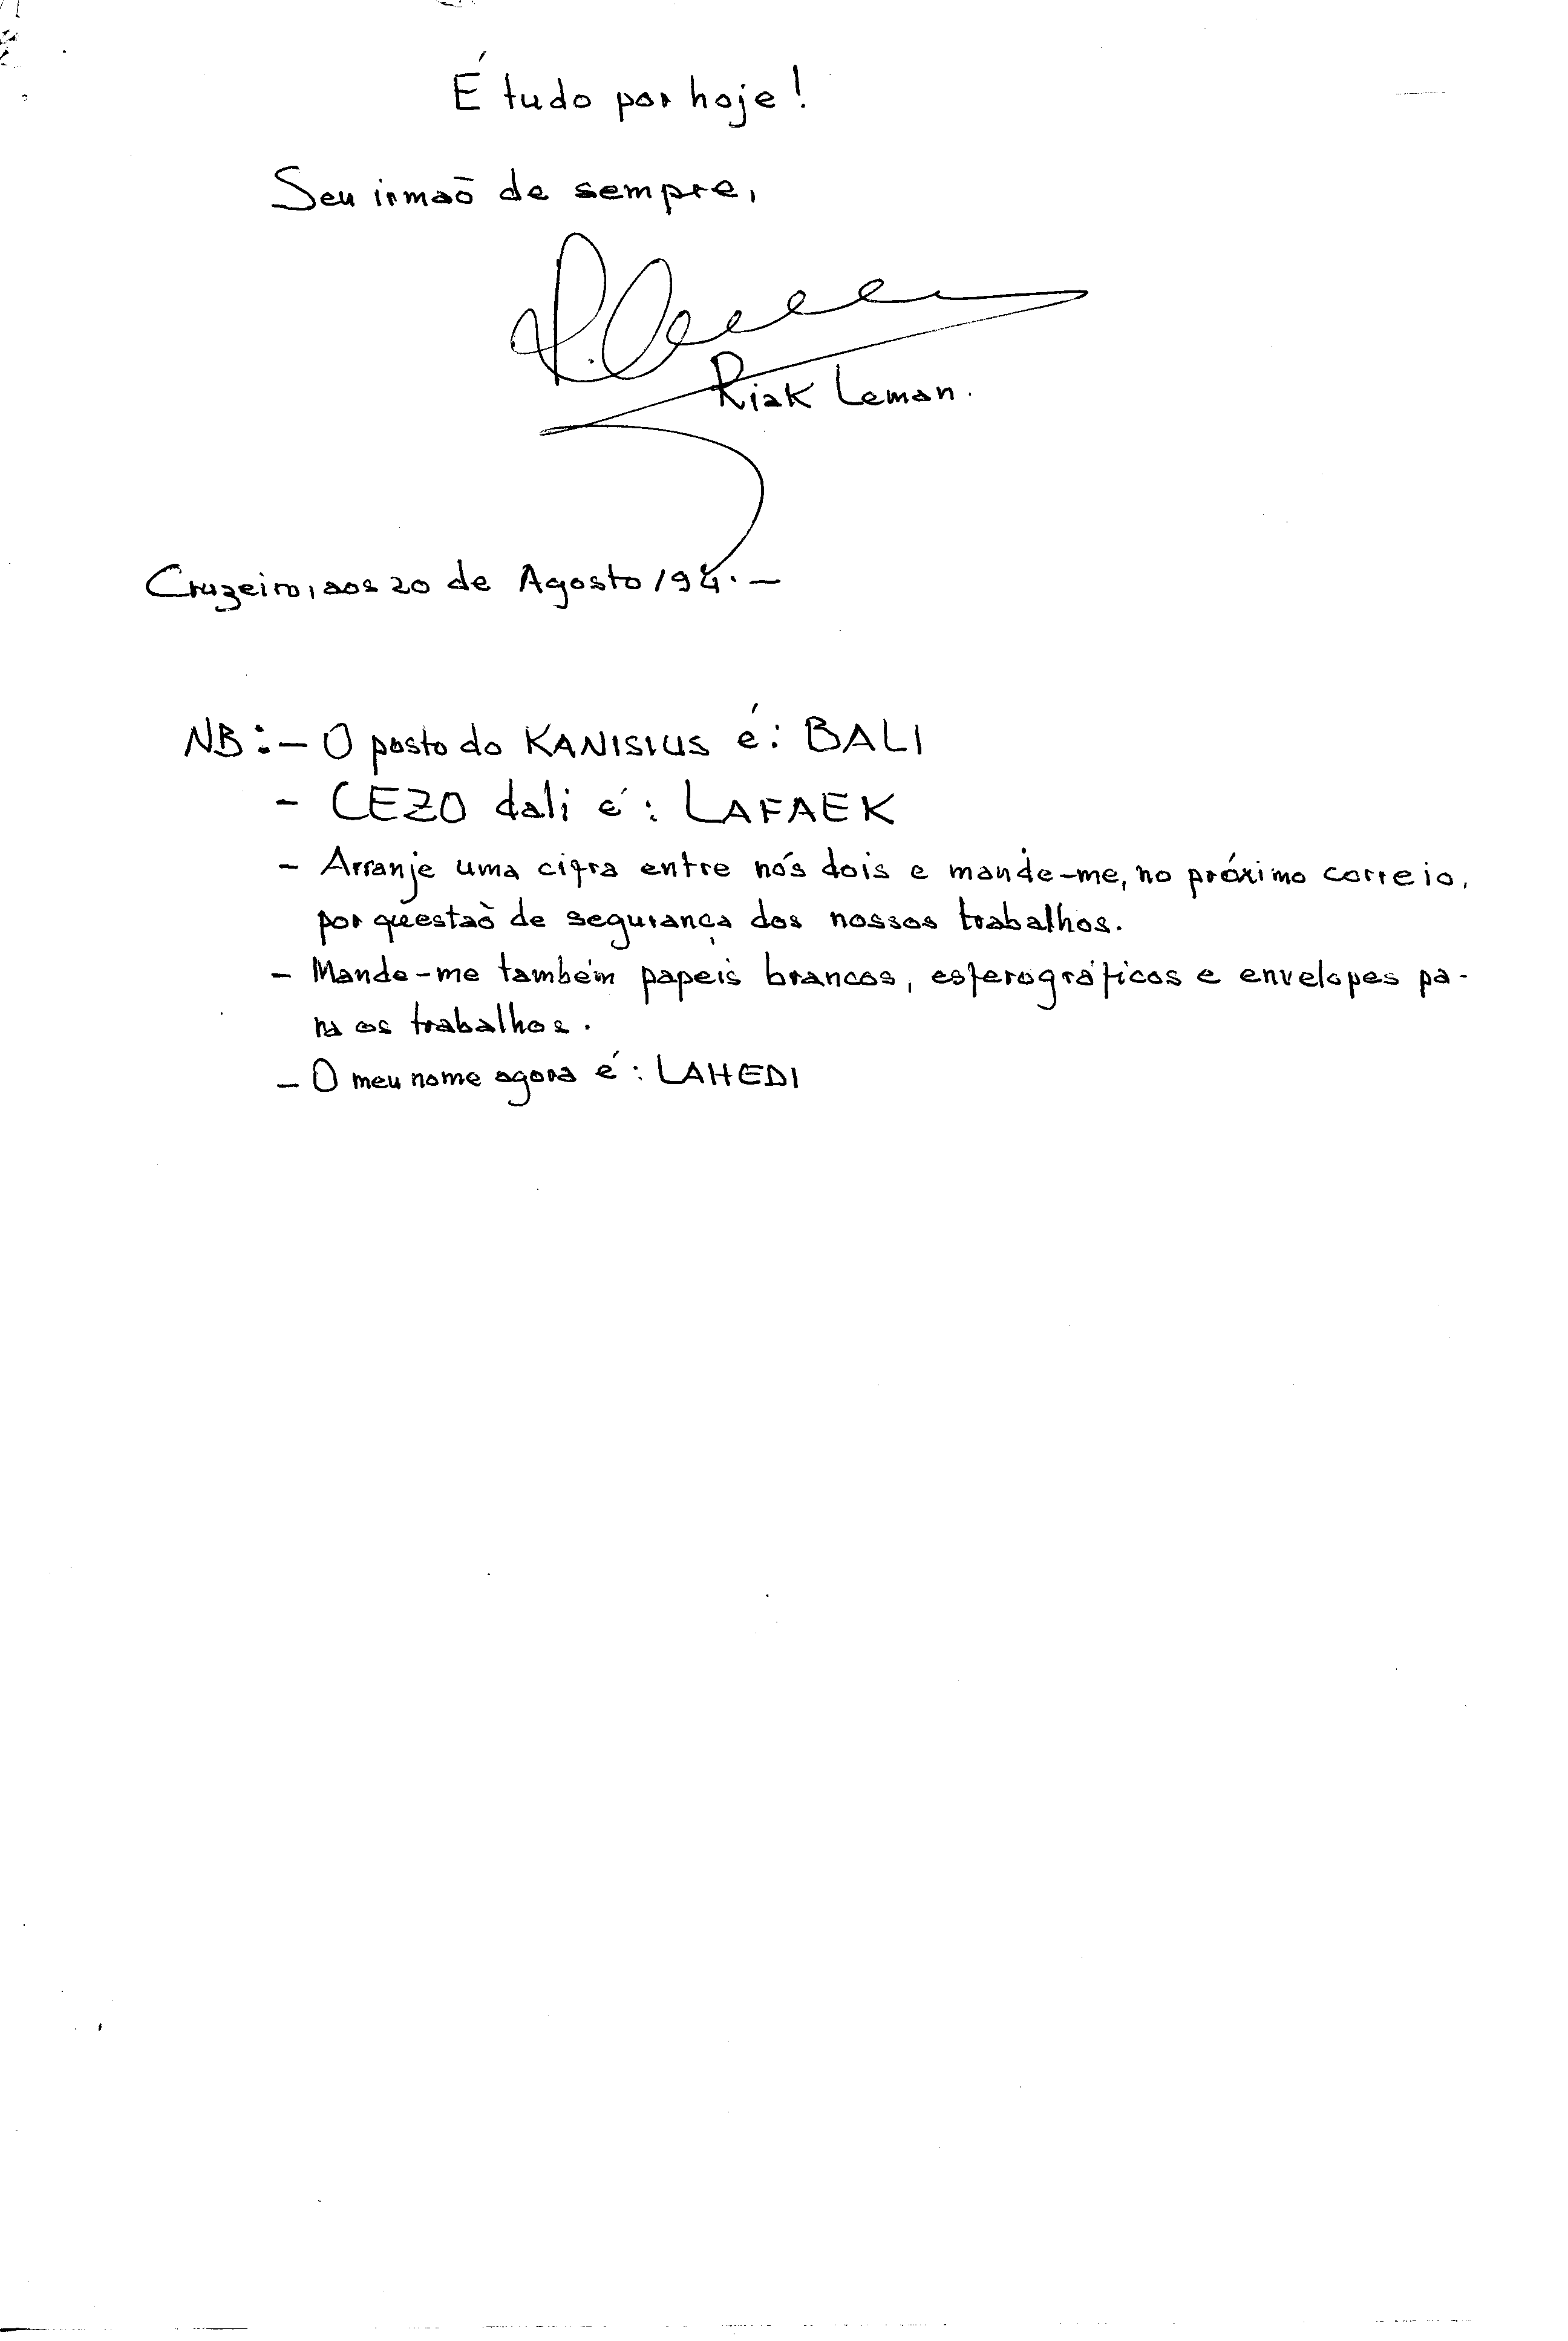 É tudo por hoje!
Seu irmaõ de sempre,
Riak Leman.
Cruzeiro, aos 20 de Agosto/94.-
NB:- O posto do KANISIUS é: BALI
- CEZO dali é: LAFAEK
- Arranje uma cifra entre nós dois e mande-me, no próximo correio,
por questaõ de segurança dos nossos trabalhos.
- Mande-me também papeis brancos, esferográficos e envelopes pa-
ra os trabalhos.
- O meu nome agora é: LAHEDI